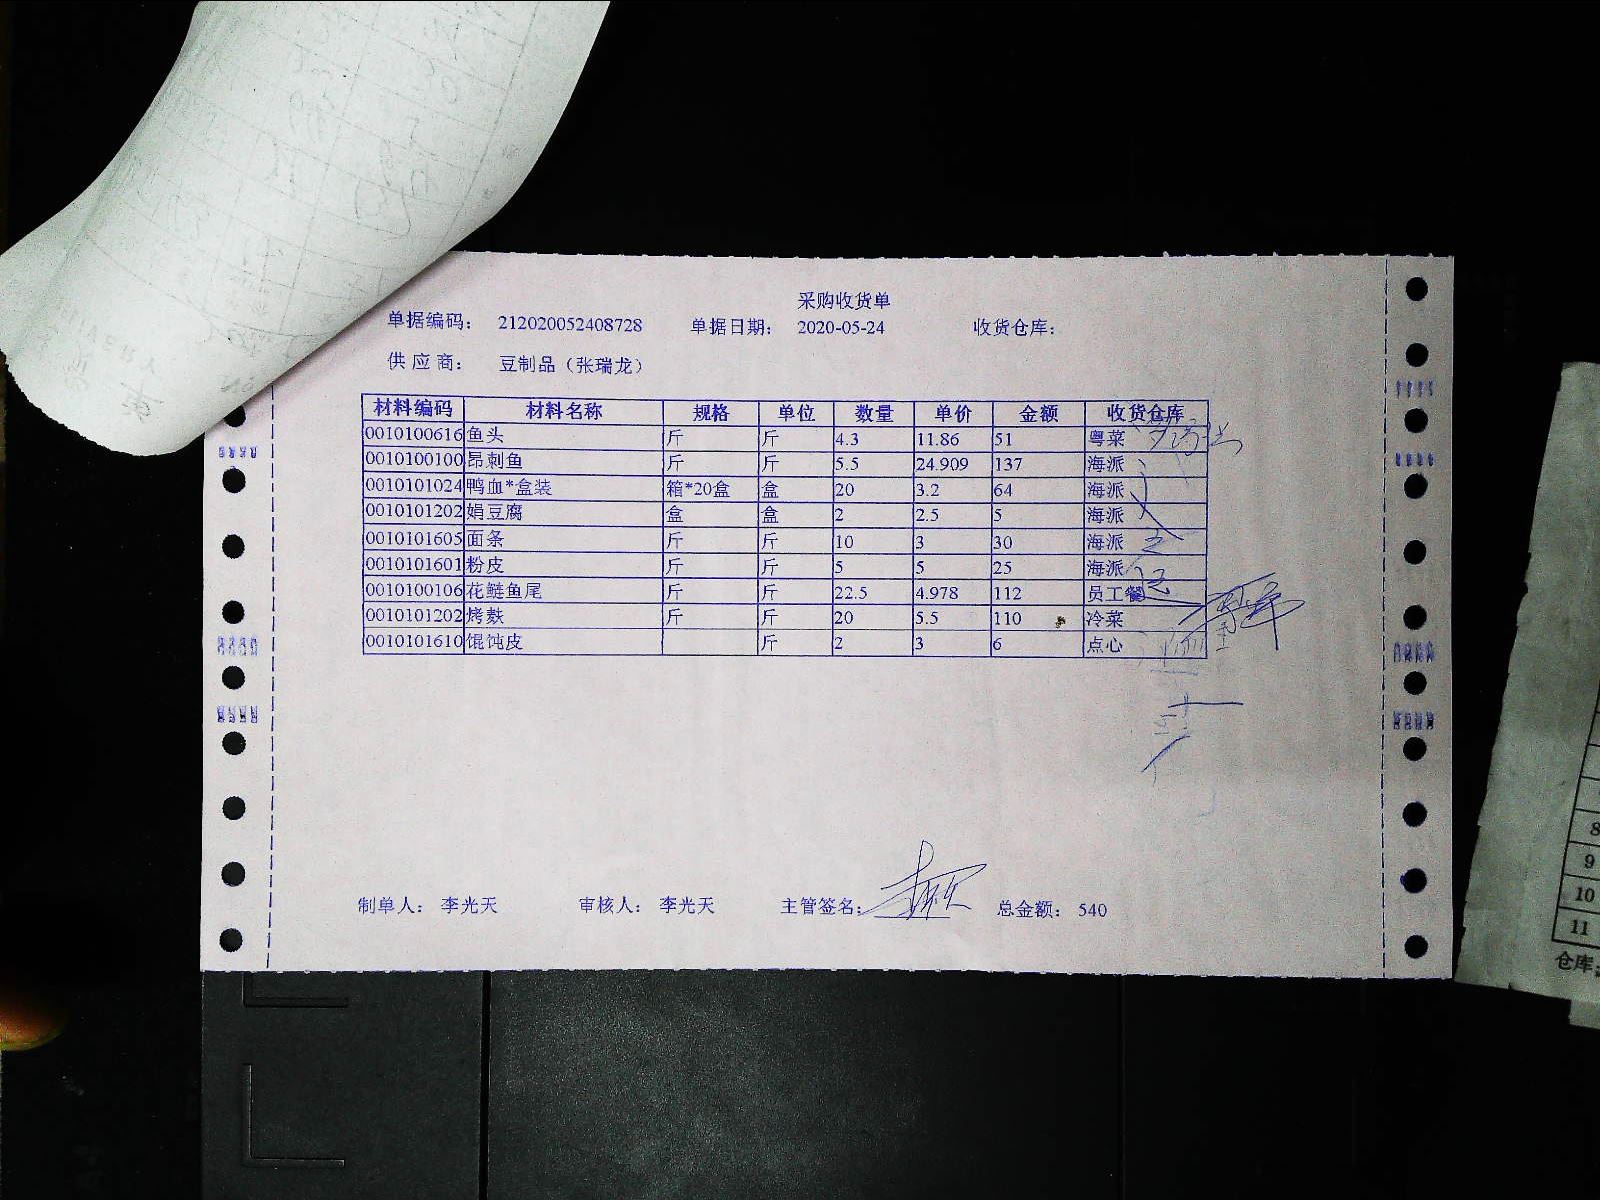 采购收货单
单据编码： 212020052408728 单据日期： 2020-05-24 收货仓库：
供应商： 豆制品（张瑞龙）
材料编码 材料名称 规格 单位 数量 单价 金额 收货仓库
0010100616 鱼头 斤 斤 4.3 11.86 51 粤菜
0010100100 昂刺鱼 斤 斤 5.5 24.909 137 海派
0010101024 鸭血*盒装 箱*20盒 盒 20 3.2 64 海派
0010101202 娟豆腐 盒 盒 2 2.5 5 海派
0010101605 面条 斤 斤 10 3 30 海派
0010101601 粉皮 斤 斤 5 5 25 海派
0010100106 花鲢鱼尾 斤 斤 22.5 4.978 112 员工餐
0010101202 烤麸 斤 斤 20 5.5 110 冷菜
0010101610 馄饨皮 斤 2 3 6 点心
制单人： 李光天 审核人： 李光天 主管签名： 总金额： 540
8
9
10
11
仓库：